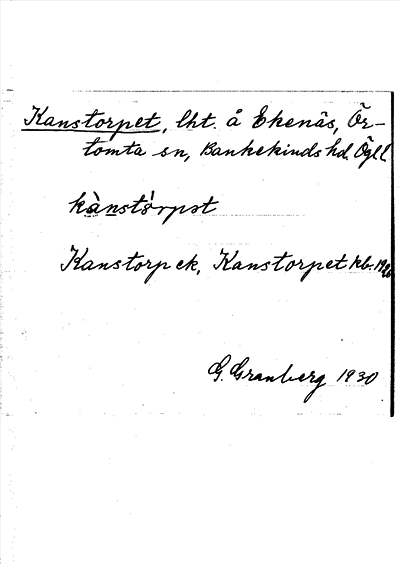 Kanstorpet, lht. å Ekenäs, Ör-
tomta sn, Bankekinds hd. Ögl l
kànstórpət
Kanstorp ek, Kanstorpet kb. 1920
G. Granberg 1930